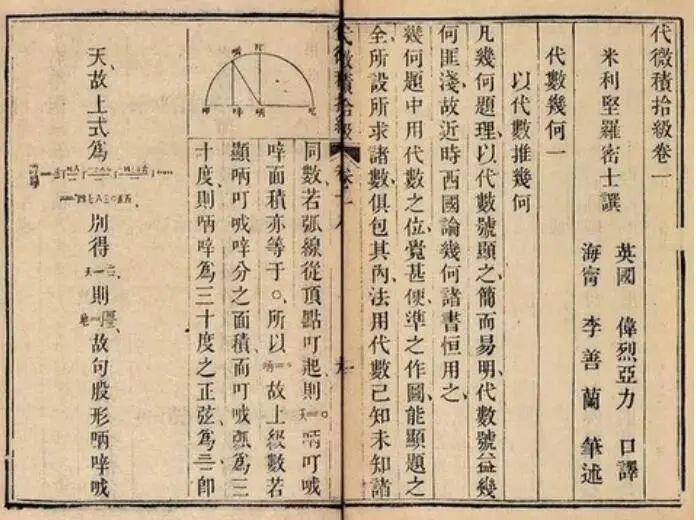 代微積拾級卷一
米利堅羅密士譔
英國 偉烈亞力 口譯
海甯 李善蘭 筆述
代數幾何一
以代數推幾何
凡幾何題理以代數號顯之簡而易明代數號益幾
何匪淺故近時西國論幾何諸書恒用之
幾何題中用代數之位覺甚便準之作圖能顯題之
全所設所求諸數俱包其內法用代數已知未知諸
代微積拾級
同數若弧線從頂點叮起則 呐叮哦
啐面積亦等于〇所以 故上級數若
顯呐叮哦啐分之面積而叮哦弧為三
十度則呐啐為三十度之正弦為 卽
天故上式為
別得 則 故句股形呐啐哦